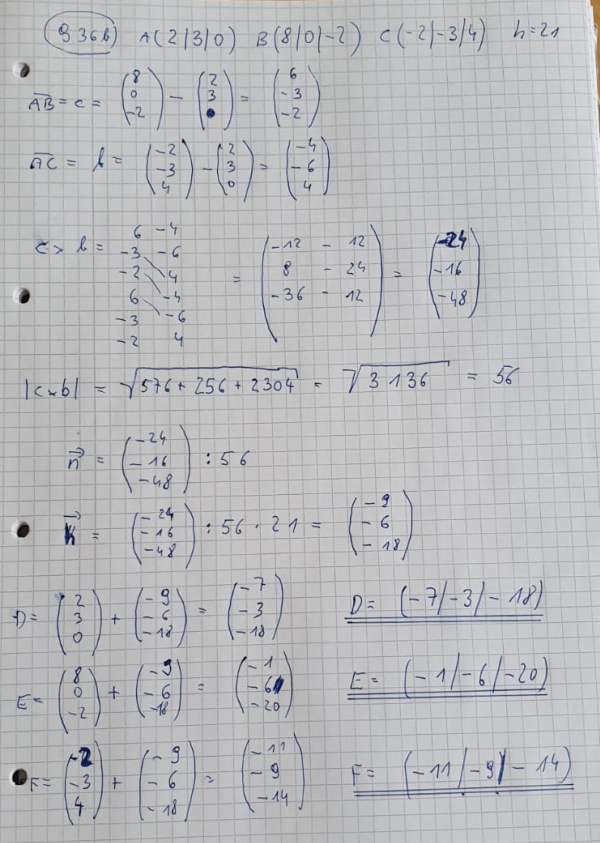 936b) A(2|3|0) B(8|0|-2) C(-2|-3|4) h=21
AB = c = (8 0 -2) - (2 3 0) = (6 -3 -2)
AC = b = (-2 -3 4) - (2 3 0) = (-4 -6 4)
c × b =
6 -4
-3 -6
-2 4
6 -4
-3 -6
-2 4
= (-12 - 12 8 - 24 -36 - 12) = (-24 -16 -48)
|c×b| = √576+256+2304 = √3136 = 56
n = (-24 -16 -48) : 56
k = (-24 -16 -48) : 56 · 21 = (-9 -6 -18)
D= (2 3 0) + (-9 -6 -18) = (-7 -3 -18) D= (-7|-3|-18)
E= (8 0 -2) + (-9 -6 -18) = (-1 -6 -20) E= (-1|-6|-20)
F= (-2 -3 4) + (-9 -6 -18) = (-11 -9 -14) F= (-11|-9|-14)